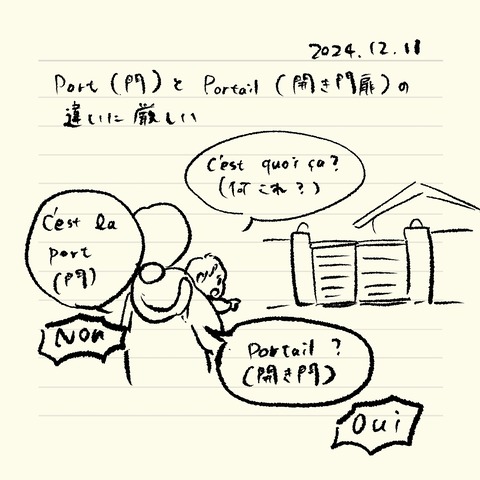 2024.12.18
Port (門) と Portail (開き門扉) の
違いに厳しい
C'est quoi ça?
(何これ?)
C'est la
port
(門)
Non
Portail ?
(開き門)
Oui